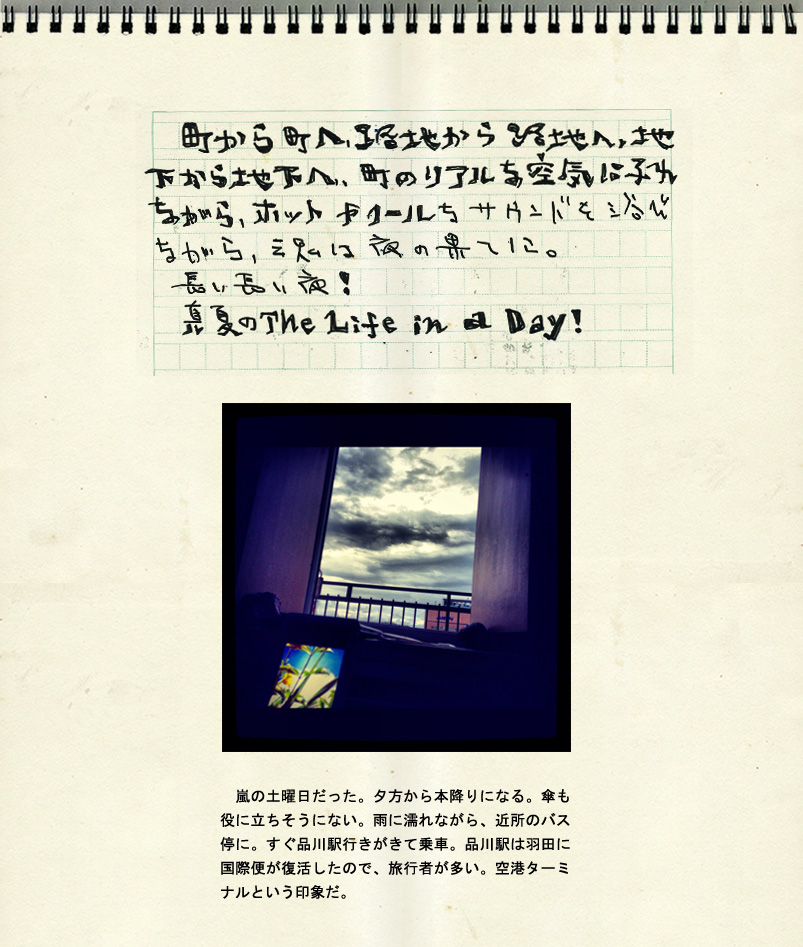 町から町へ、路地から路地へ、地
下から地下へ、町のリアルな空気に予れ
ながら、ホット でクールなサウンドを浴び
ながら、ミ兄は夜の果てに。
長い長い夜!
真夏のThe Life in a Day!
嵐の土曜日だった。夕方から本降りになる。傘も
役に立ちそうにない。雨に濡れながら、近所のバス
停に。すぐ品川駅行きがきて乗車。品川駅は羽田に
国際便が復活したので、旅行者が多い。空港ターミ
ナルという印象だ。